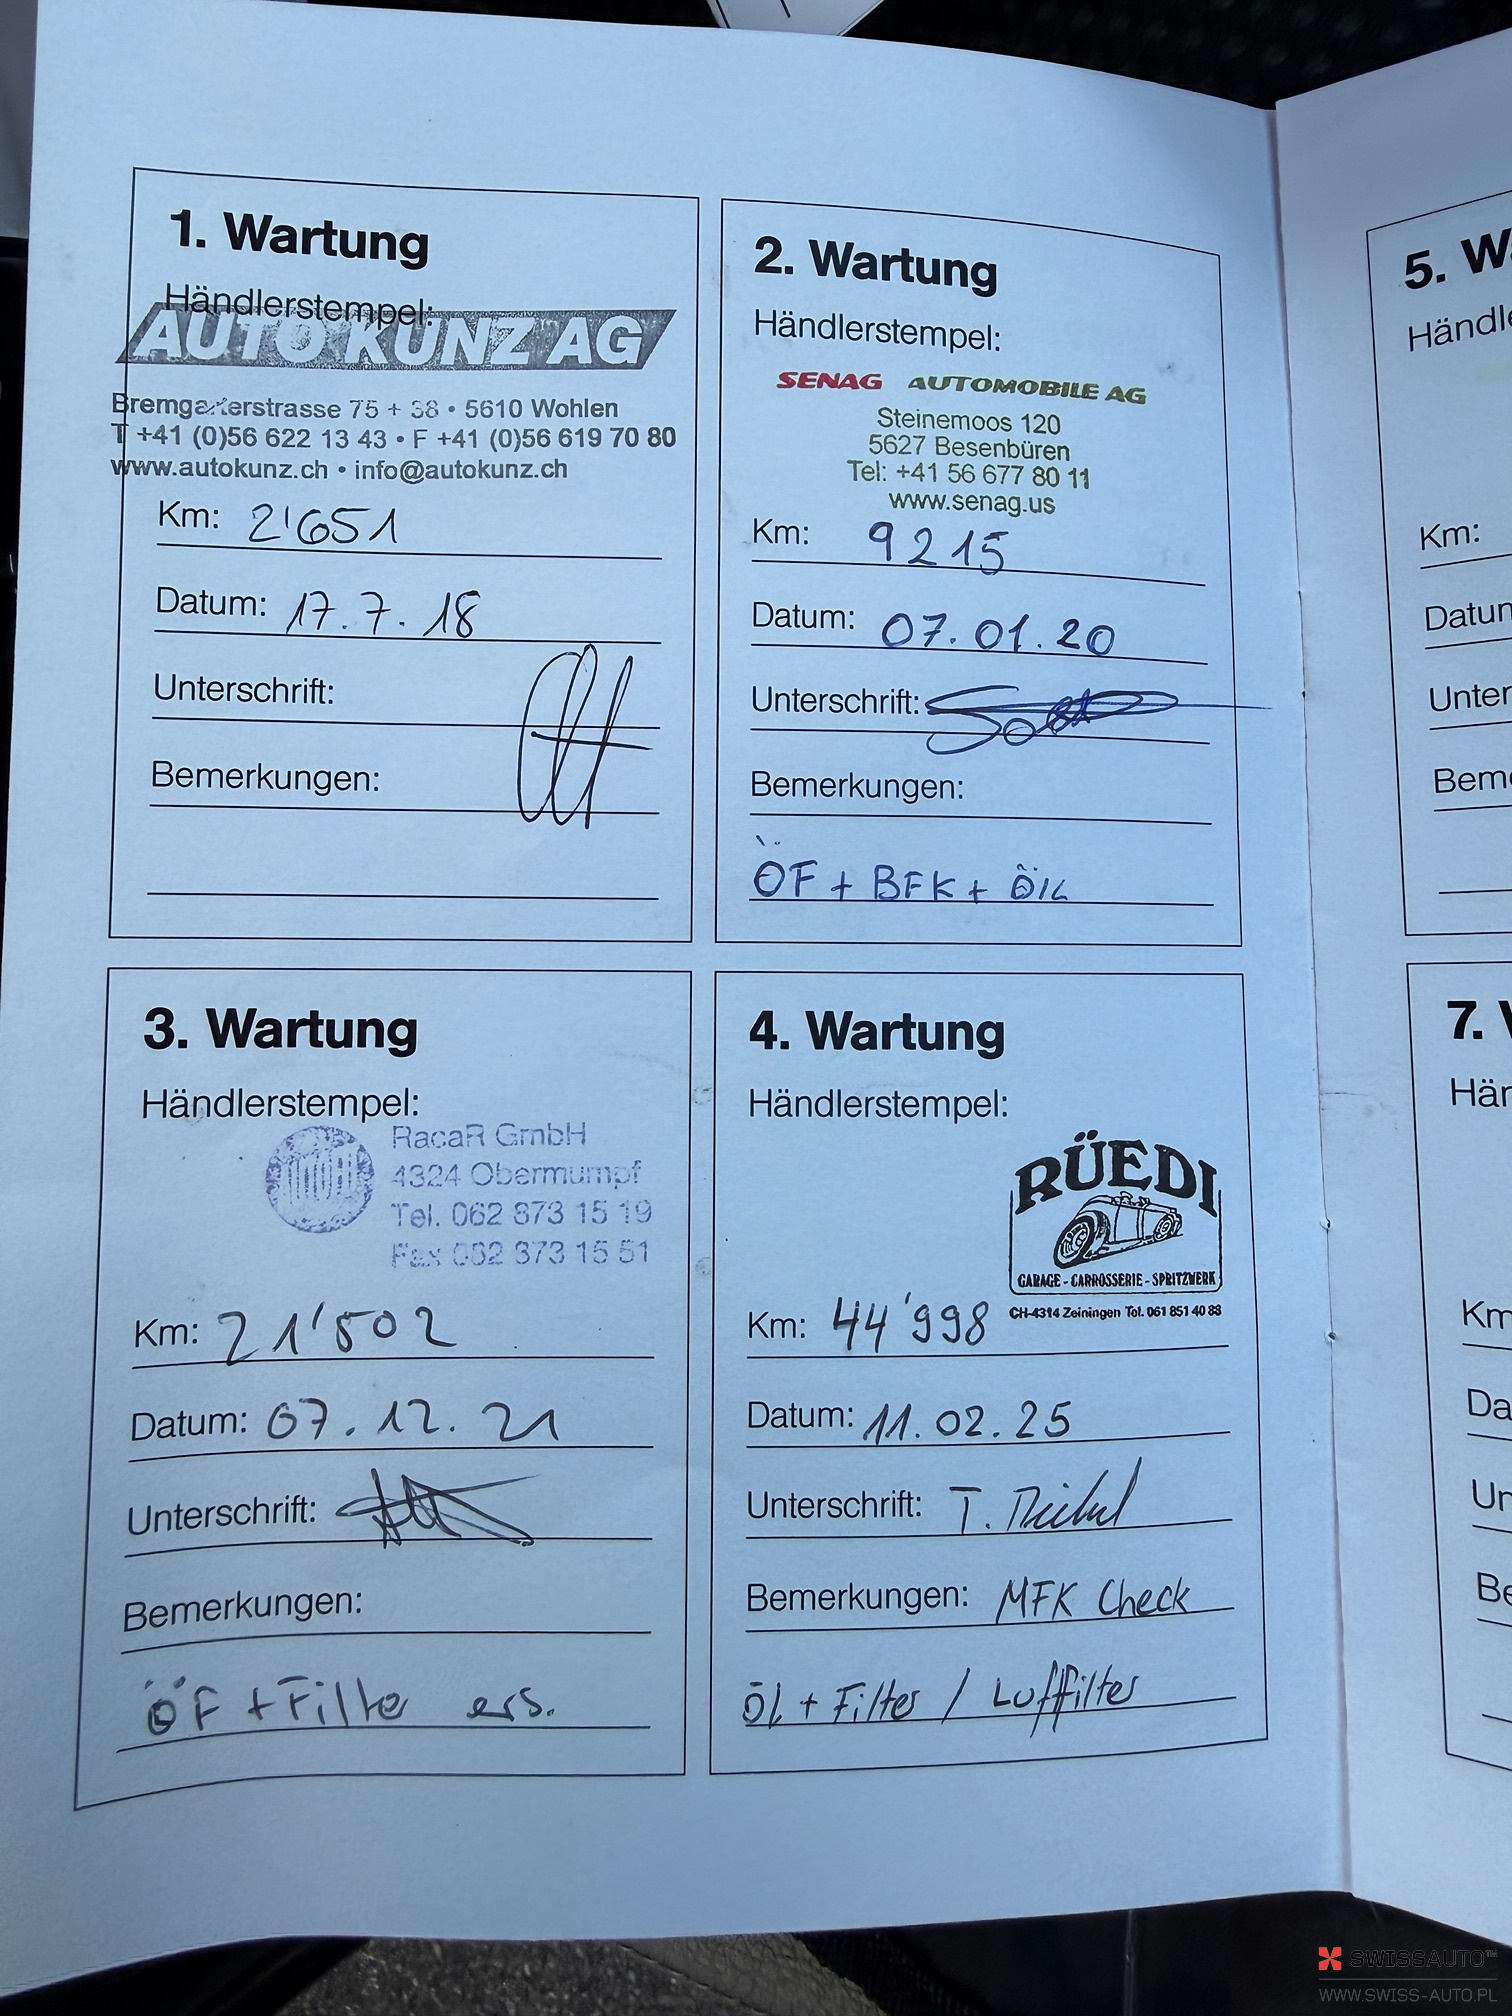 1. Wartung
Händlerstempel:
AUTO KUNZ AG
Bremgarterstrasse 75 + 38 • 5610 Wohlen
T +41 (0)56 622 13 43 • F +41 (0)56 619 70 80
www.autokunz.ch • info@autokunz.ch
Km: 2'651
Datum: 17.7.18
Unterschrift:
Bemerkungen:
2. Wartung
Händlerstempel:
SENAG AUTOMOBILE AG
Steinemoos 120
5627 Besenbüren
Tel: +41 56 677 80 11
www.senag.us
Km: 9215
Datum: 07.01.20
Unterschrift:
Bemerkungen:
ÖF + BFK + ÖIL
3. Wartung
Händlerstempel:
RacaR GmbH
4324 Obermumpf
Tel. 062 873 15 19
Fax 062 873 15 51
Km: 21'502
Datum: 07.12.21
Unterschrift:
Bemerkungen:
ÖF + Filter ers.
4. Wartung
Händlerstempel:
RÜEDI
GARAGE - CARROSSERIE - SPRITZWERK
CH-4314 Zeiningen Tel. 061 851 40 88
Km: 44'998
Datum: 11.02.25
Unterschrift: T.
Bemerkungen: MFK Check
Öl + Filter / Luftfilter
5. W
Händl
Km:
Datun
Unter
Bem
7.
Hän
Km
Da
Un
Be
SWISSAUTO™
WWW.SWISS-AUTO.PL